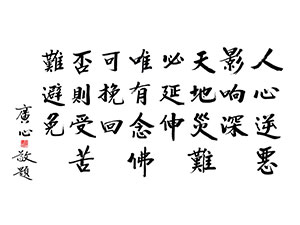 人心逆惡
影响深
天地災難
必延伸
唯有念佛
可挽回
否則受苦
難避免
廣心敬題